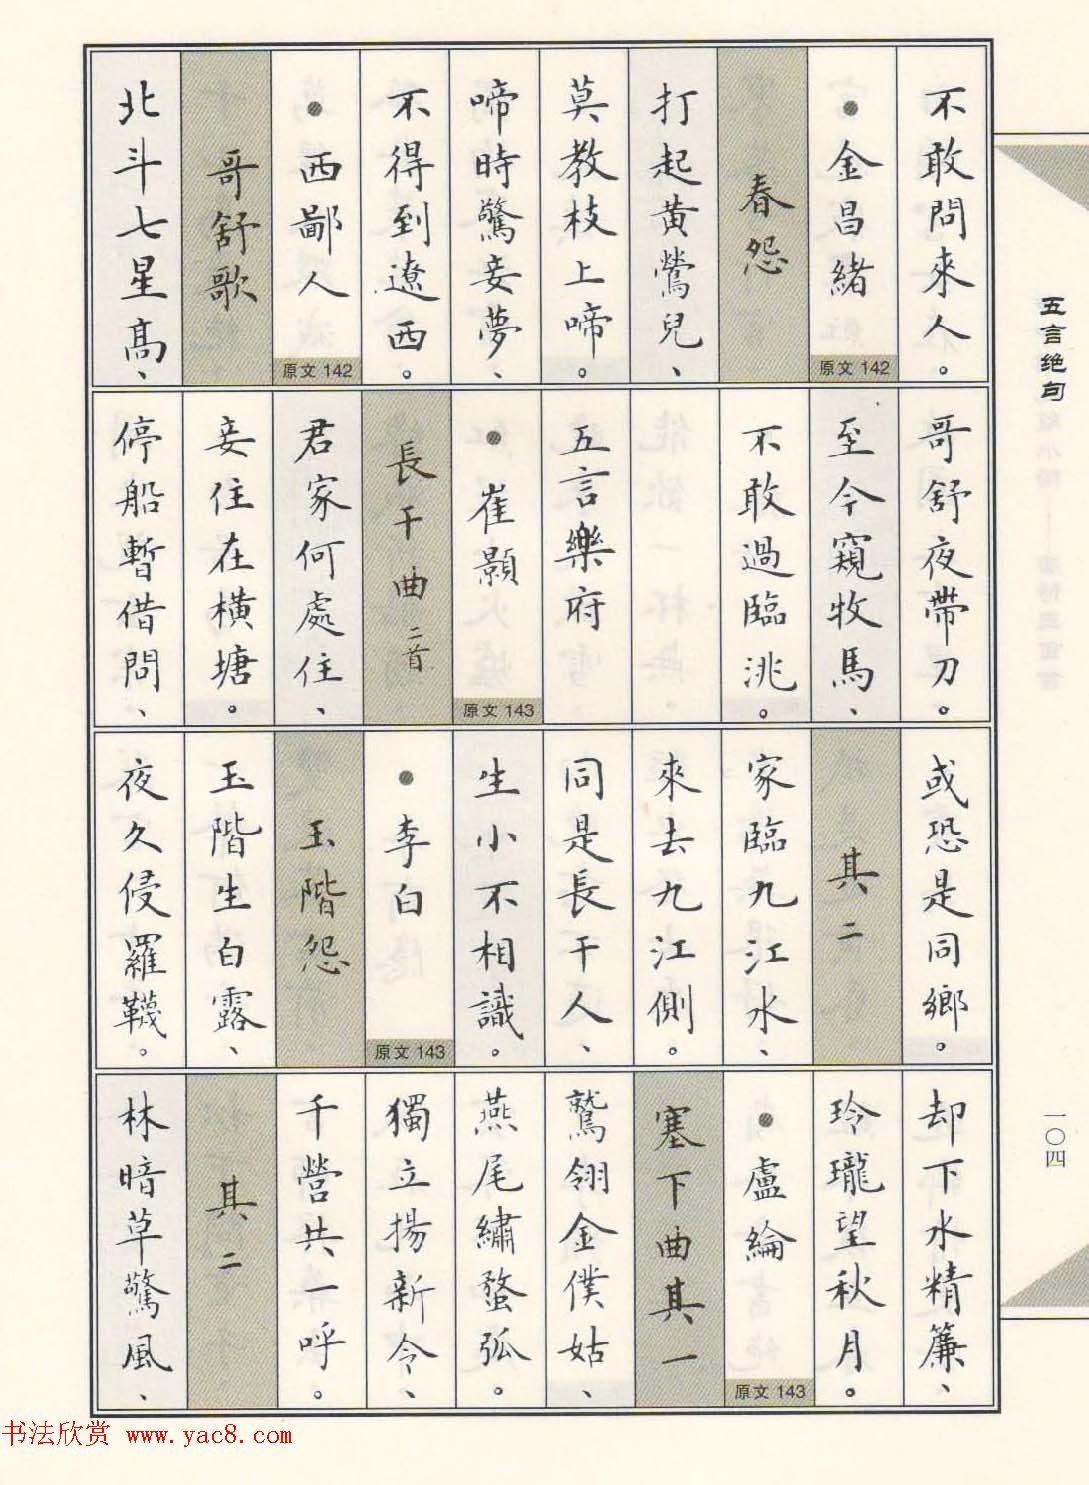 不敢問來人。
●金昌緒
原文 142
春怨
打起黄鶯兒、
莫教枝上啼。
啼時驚妾夢、
不得到遼西。
●西鄙人
原文 142
哥舒歌
北斗七星髙、
哥舒夜帶刀。
至今窺牧馬、
不敢過臨洮。
五言樂府
●崔顥
原文 143
長干曲 二首
君家何處住、
妾住在横塘。
停船暫借問、
或恐是同鄉。
其二
家臨九江水、
來去九江側。
同是長干人、
生小不相識。
●李白
原文 143
玉階怨
玉階生白露、
夜久侵羅韈。
却下水精簾、
玲瓏望秋月。
●盧綸
原文 143
塞下曲其一
鷲翎金僕姑、
燕尾繡蝥弧。
獨立揚新令、
千營共一呼。
其二
林暗草驚風、
五言绝句
一〇四
书法欣赏 www.yac8.com